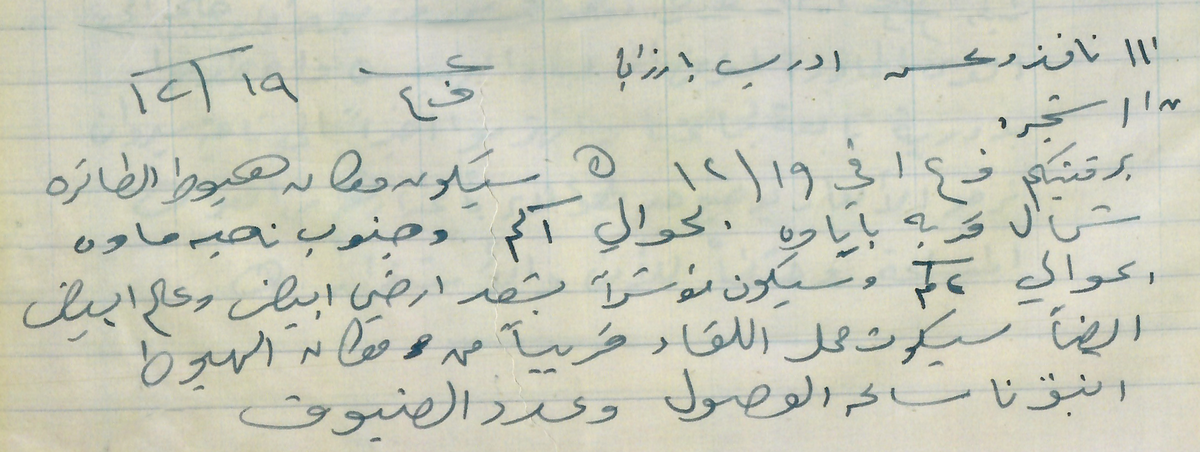 ادريس بارزاني ف ع ١٢/١٩
استخبر
برقيتكم ف ع ١ في ١٢/١٩ سيكون مكان هبوط الطائرة
شمال قرية باياوه بحوالي ١كم وجنوب ناحية ماوه
بحوالي ٢كم وسيكون مؤشراً بقصد ارضي ابيض وعلم ابيض
ايضاً سيكون محل اللقاء قريباً من مكان الهبوط
انبؤنا ساعة الوصول وعدد الضيوف